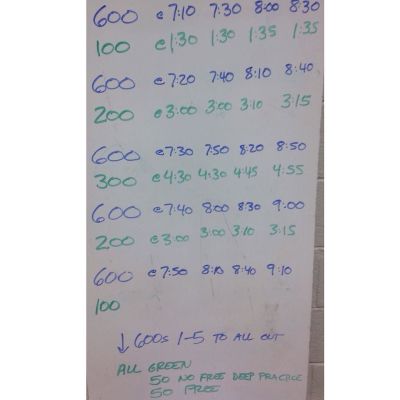 600 @ 7:10 7:30 8:00 8:30
100 @ 1:30 1:30 1:35 1:35
600 @ 7:20 7:40 8:10 8:40
200 @ 3:00 3:00 3:10 3:15
600 @ 7:30 7:50 8:20 8:50
300 @ 4:30 4:30 4:45 4:55
600 @ 7:40 8:00 8:30 9:00
200 @ 3:00 3:00 3:10 3:15
600 @ 7:50 8:10 8:40 9:10
100
↓ 600s 1-5 TO ALL OUT
ALL GREEN
50 NO FREE DEEP PRACTICE
50 FREE